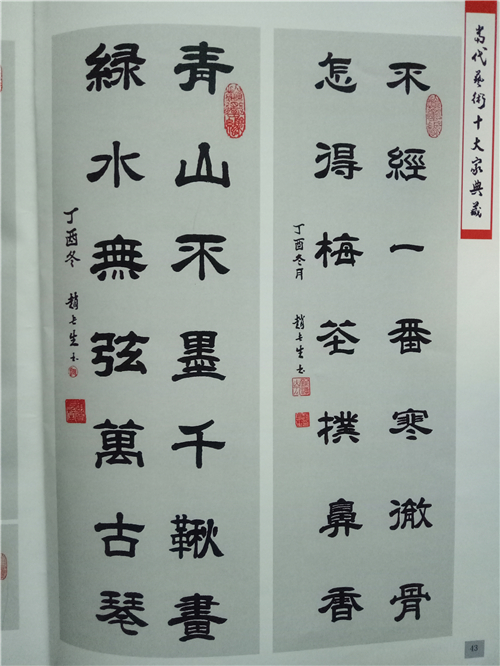 當代藝術十大家典藏
不經一番寒徹骨
怎得梅花撲鼻香
丁酉冬月
青山不墨千鞦畫
綠水無弦萬古琴
丁酉冬
43